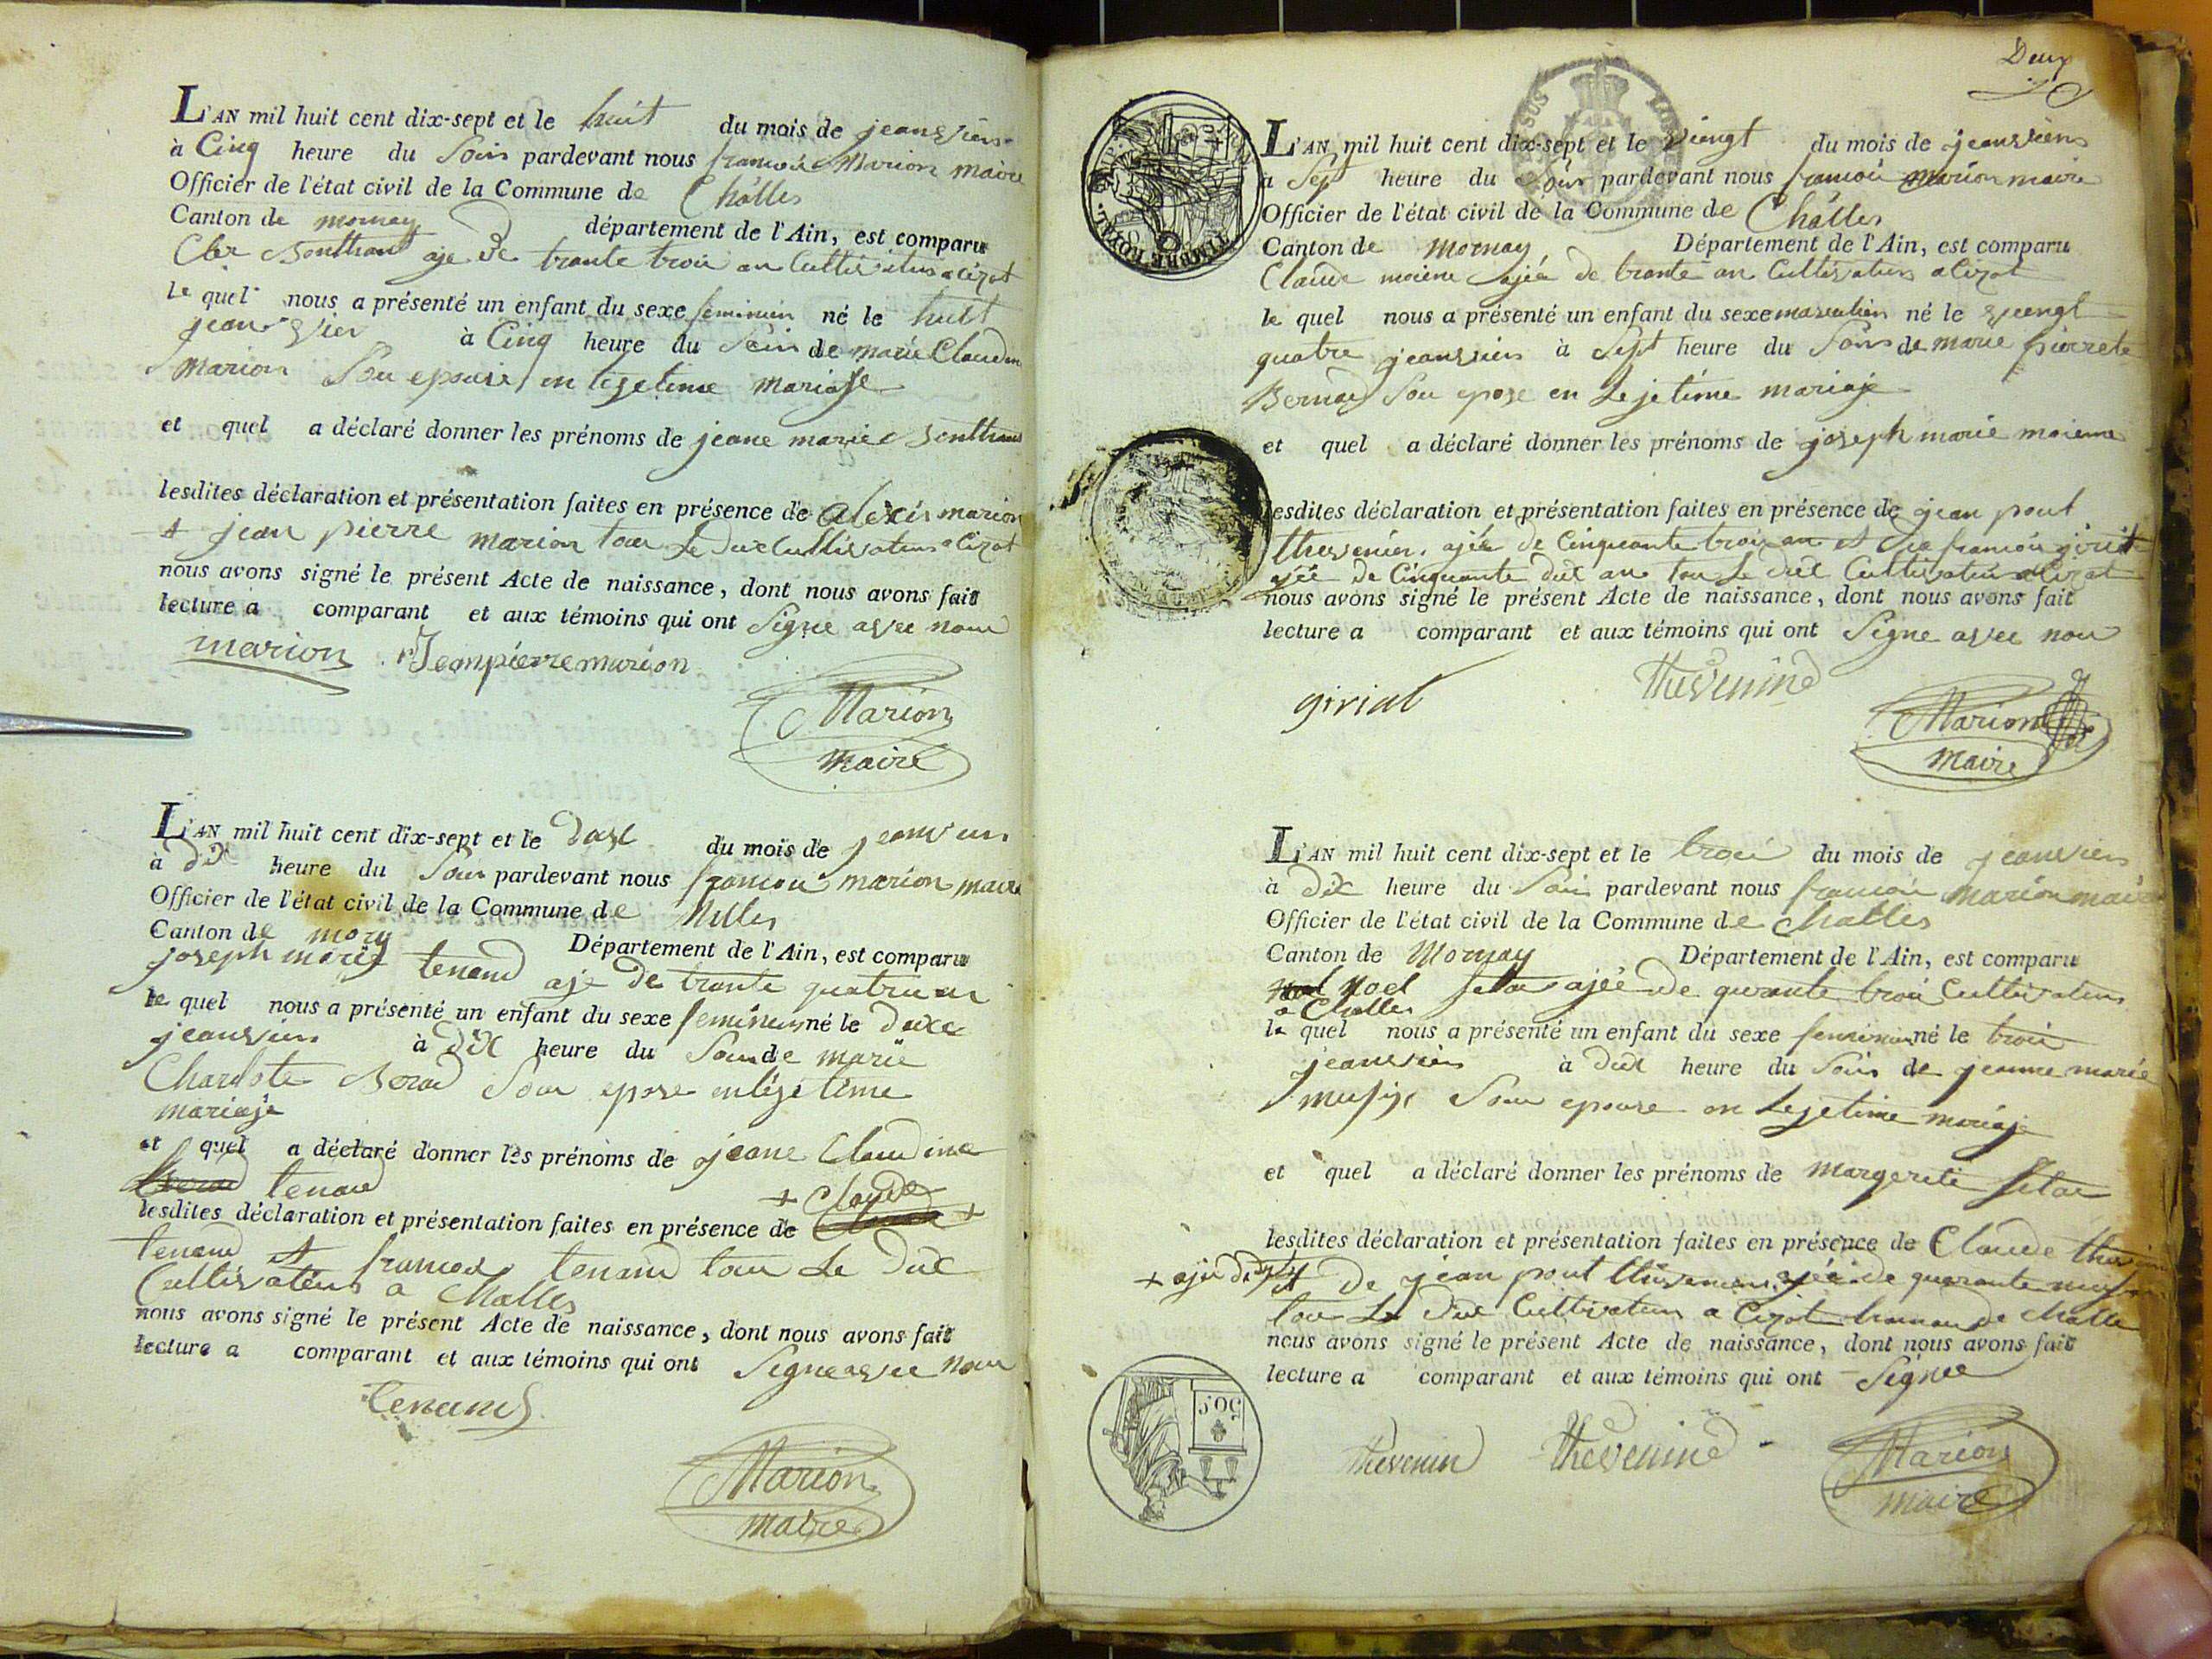 L'AN mil huit cent dix-sept et le huit du mois de jeanvien
à Cinq heure du Soir pardevant nous francois Marion maire
Officier de l'état civil de la Commune de Châlles
Canton de mornay département de l'Ain, est comparu
aje de trante troii an Cultivateur a Cizot
le quel nous a présenté un enfant du sexe feminin né le huit
jeanvier à Cinq heure du Soir de marie
Marion Sou epouse en legetime mariaje
et quel a déclaré donner les prénoms de jeane marie
lesdites déclaration et présentation faites en présence de alexis marion
et jean pierre marion tou Le dux Cultivateur a Cizot
nous avons signé le présent Acte de naissance, dont nous avons fait
lecture a comparant et aux témoins qui ont Signe avec nou
marion Jeanpierre marion
Marion
maire
L'AN mil huit cent dix-sept et le du mois de jeanvien
à dix heure du Soir pardevant nous francoii marion maire
Officier de l'état civil de la Commune de
Canton de Département de l'Ain, est comparu
joseph marie tenand aje de trante quatre an
le quel nous a présenté un enfant du sexe feminin né le
jeanvien à dix heure du Soir de marie
Charlote Sou epose en legetime
mariaje
et quel a déclaré donner les prénoms de jeane Claudine
tenand
+ Claude
lesdites déclaration et présentation faites en présence de +
tenand et francois tenand tou Le dux
Cultivateur a Challes
nous avons signé le présent Acte de naissance, dont nous avons fait
lecture a comparant et aux témoins qui ont Signe avec nou
tenand
Marion
maire
Deux
L'AN mil huit cent dix-sept et le viengt du mois de jeanvien
a Sept heure du Soir pardevant nous francoii marion maire
Officier de l'état civil de la Commune de Châlles
Canton de mornay Département de l'Ain, est comparu
Claude moiene ajée de trante an Cultivateur a Cizot
le quel nous a présenté un enfant du sexe masculien né le viengt
quatre jeanvien à Sept heure du Soir de marie pierrete
Bernard Sou epose en Lejetime mariaje
et quel a déclaré donner les prénoms de joseph marie moiene
lesdites déclaration et présentation faites en présence de jean pout
thevenien ajée de Cinquante troix an et francoii
ajée de Cinquante dux an tou Le dux Cultivateur a Cizot
nous avons signé le présent Acte de naissance, dont nous avons fait
lecture a comparant et aux témoins qui ont Signe avec nou
giriat thevenind
Marion
maire
TIMBRE ROYAL
L'AN mil huit cent dix-sept et le troii du mois de jeanvien
à dix heure du Soir pardevant nous francoii marion maire
Officier de l'état civil de la Commune de Challes
Canton de Mornay Département de l'Ain, est comparu
Noel ajée de qurante troii Cultivateur
a Challes
le quel nous a présenté un enfant du sexe feminien né le troii
jeanvien à dix heure du Soir de jeanne marie
Sou epouse en Lejetime mariaje
et quel a déclaré donner les prénoms de margerite
lesdites déclaration et présentation faites en présence de Claude
et de jean pout thevenien ajée de quarante
tou Le dux Cultivateur a Cizot de Challe
nous avons signé le présent Acte de naissance, dont nous avons fait
lecture a comparant et aux témoins qui ont Signee
thevenin thevenind
Marion
maire
50 C.